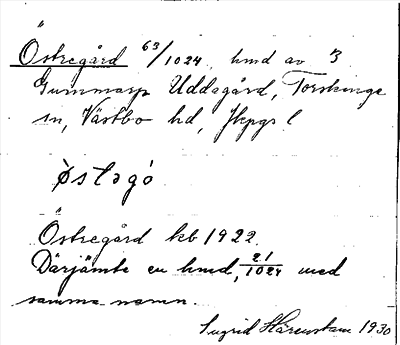 Östregård 63/1024, hmd av 3
Gummarp Uddagård, Torskinge
sn, Västbo hd, Jkpgs l
östəgó
Östregård kb 1922.
Därjämte en hmd, 21/1024 med
samma namn.
Ingrid Härenstam 1930